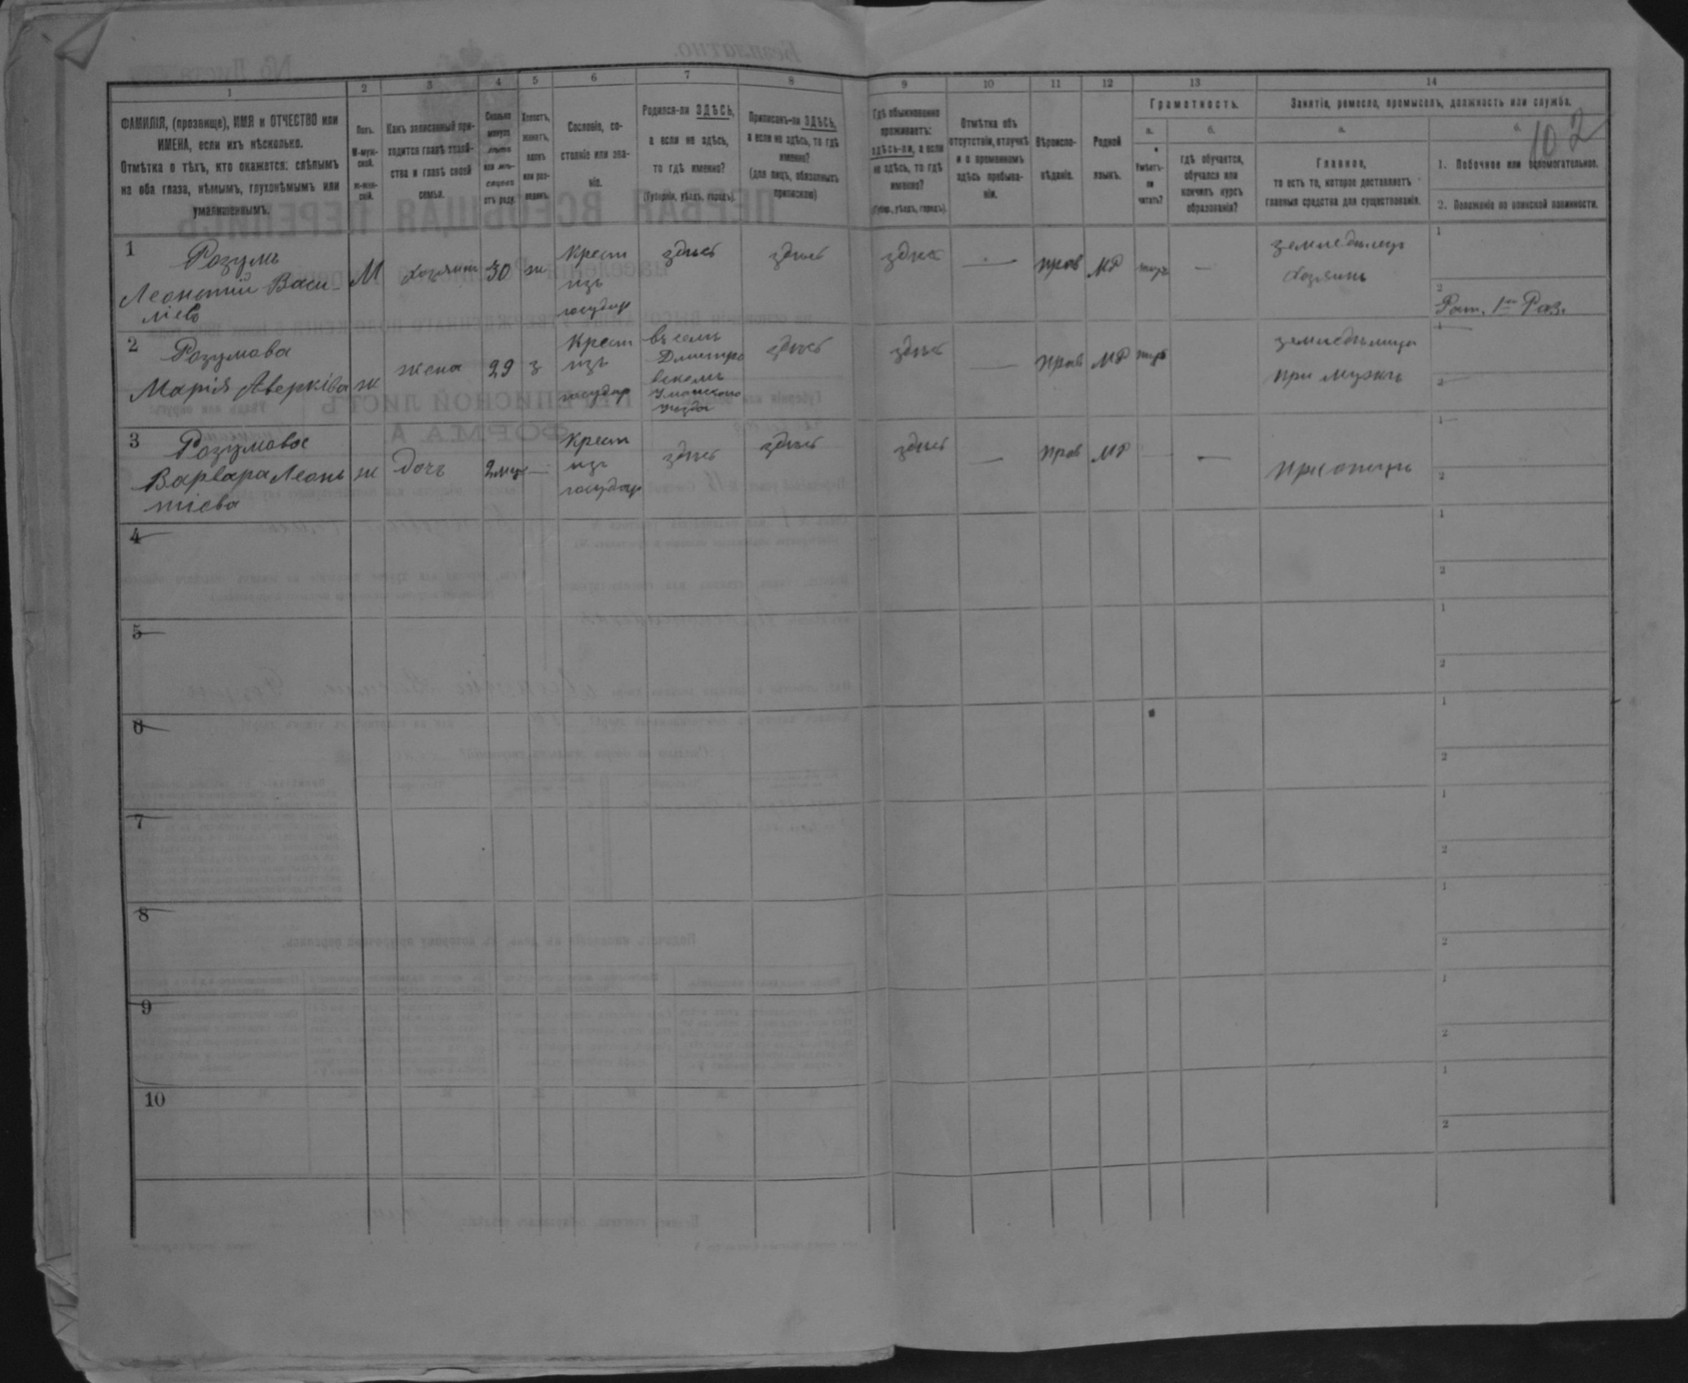 1 2 3 4 5 6 7 8 9 10 11 12 13 14
ФАМИЛІЯ, (прозвище), ИМЯ и ОТЧЕСТВО или
ИМЕНА, если ихъ нѣсколько.
Отмѣтка о тѣхъ, кто окажется: слѣпымъ
на оба глаза, нѣмымъ, глухонѣмымъ или
умалишеннымъ.
Полъ.
М-муж-
ской.
ж-жен-
скій.
Какъ записанный при-
ходится главѣ хозяй-
ства и главѣ своей
семьи.
Сколько
минуло
лѣтъ
или мѣ-
сяцевъ
отъ роду.
Холостъ,
женатъ,
вдовъ
или раз-
веденъ.
Сословіе, со-
стояніе или зва-
ніе.
Родился-ли ЗДѢСЬ,
а если не здѣсь,
то гдѣ именно?
(Губернія, уѣздъ, городъ).
Приписанъ-ли ЗДѢСЬ,
а если не здѣсь, то гдѣ
именно?
(для лицъ, обязанныхъ
припискою)
Гдѣ обыкновенно
проживаетъ:
здѣсь-ли, а если
не здѣсь, то гдѣ
именно?
(Губер., уѣздъ, городъ).
Отмѣтка объ
отсутствіи, отлучкѣ
и о временномъ
здѣсь пребыва-
ніи.
Вѣроиспо-
вѣданіе.
Родной
языкъ.
Грамотность.
а.
Умѣетъ-
ли
читать?
б.
гдѣ обучается,
обучался или
кончилъ курсъ
образованія?
Занятіе, ремесло, промыселъ, должность или служба.
а.
Главное,
то есть то, которое доставляетъ
главныя средства для существованія.
102
1. Побочное или вспомогательное.
2. Положеніе по воинской повинности.
1
Розумъ
Леонтій Васи-
ліевъ
М
хозяинъ
30
ж
Крест
изъ
государ
здѣсь
здѣсь
здѣсь
—
прав
МР
—
земледѣлецъ
хозяинъ
1
2
Рат. 1го Раз.
2
Розумова
Марія Аверкіева
ж
жена
29
з
Крест
изъ
государ
въ селѣ
Дмитро
Уманскаго
уѣзда
здѣсь
здѣсь
—
прав
МР
при мужѣ
1
2
3
Розумова
Варвара Леонъ
тіева
ж
дочь
2 мце
—
Крест
изъ
государ
здѣсь
здѣсь
здѣсь
—
прав
МР
—
при отцѣ
1
2
4
1
2
5
1
2
6
1
2
7
1
2
8
1
2
9
1
2
10
1
2